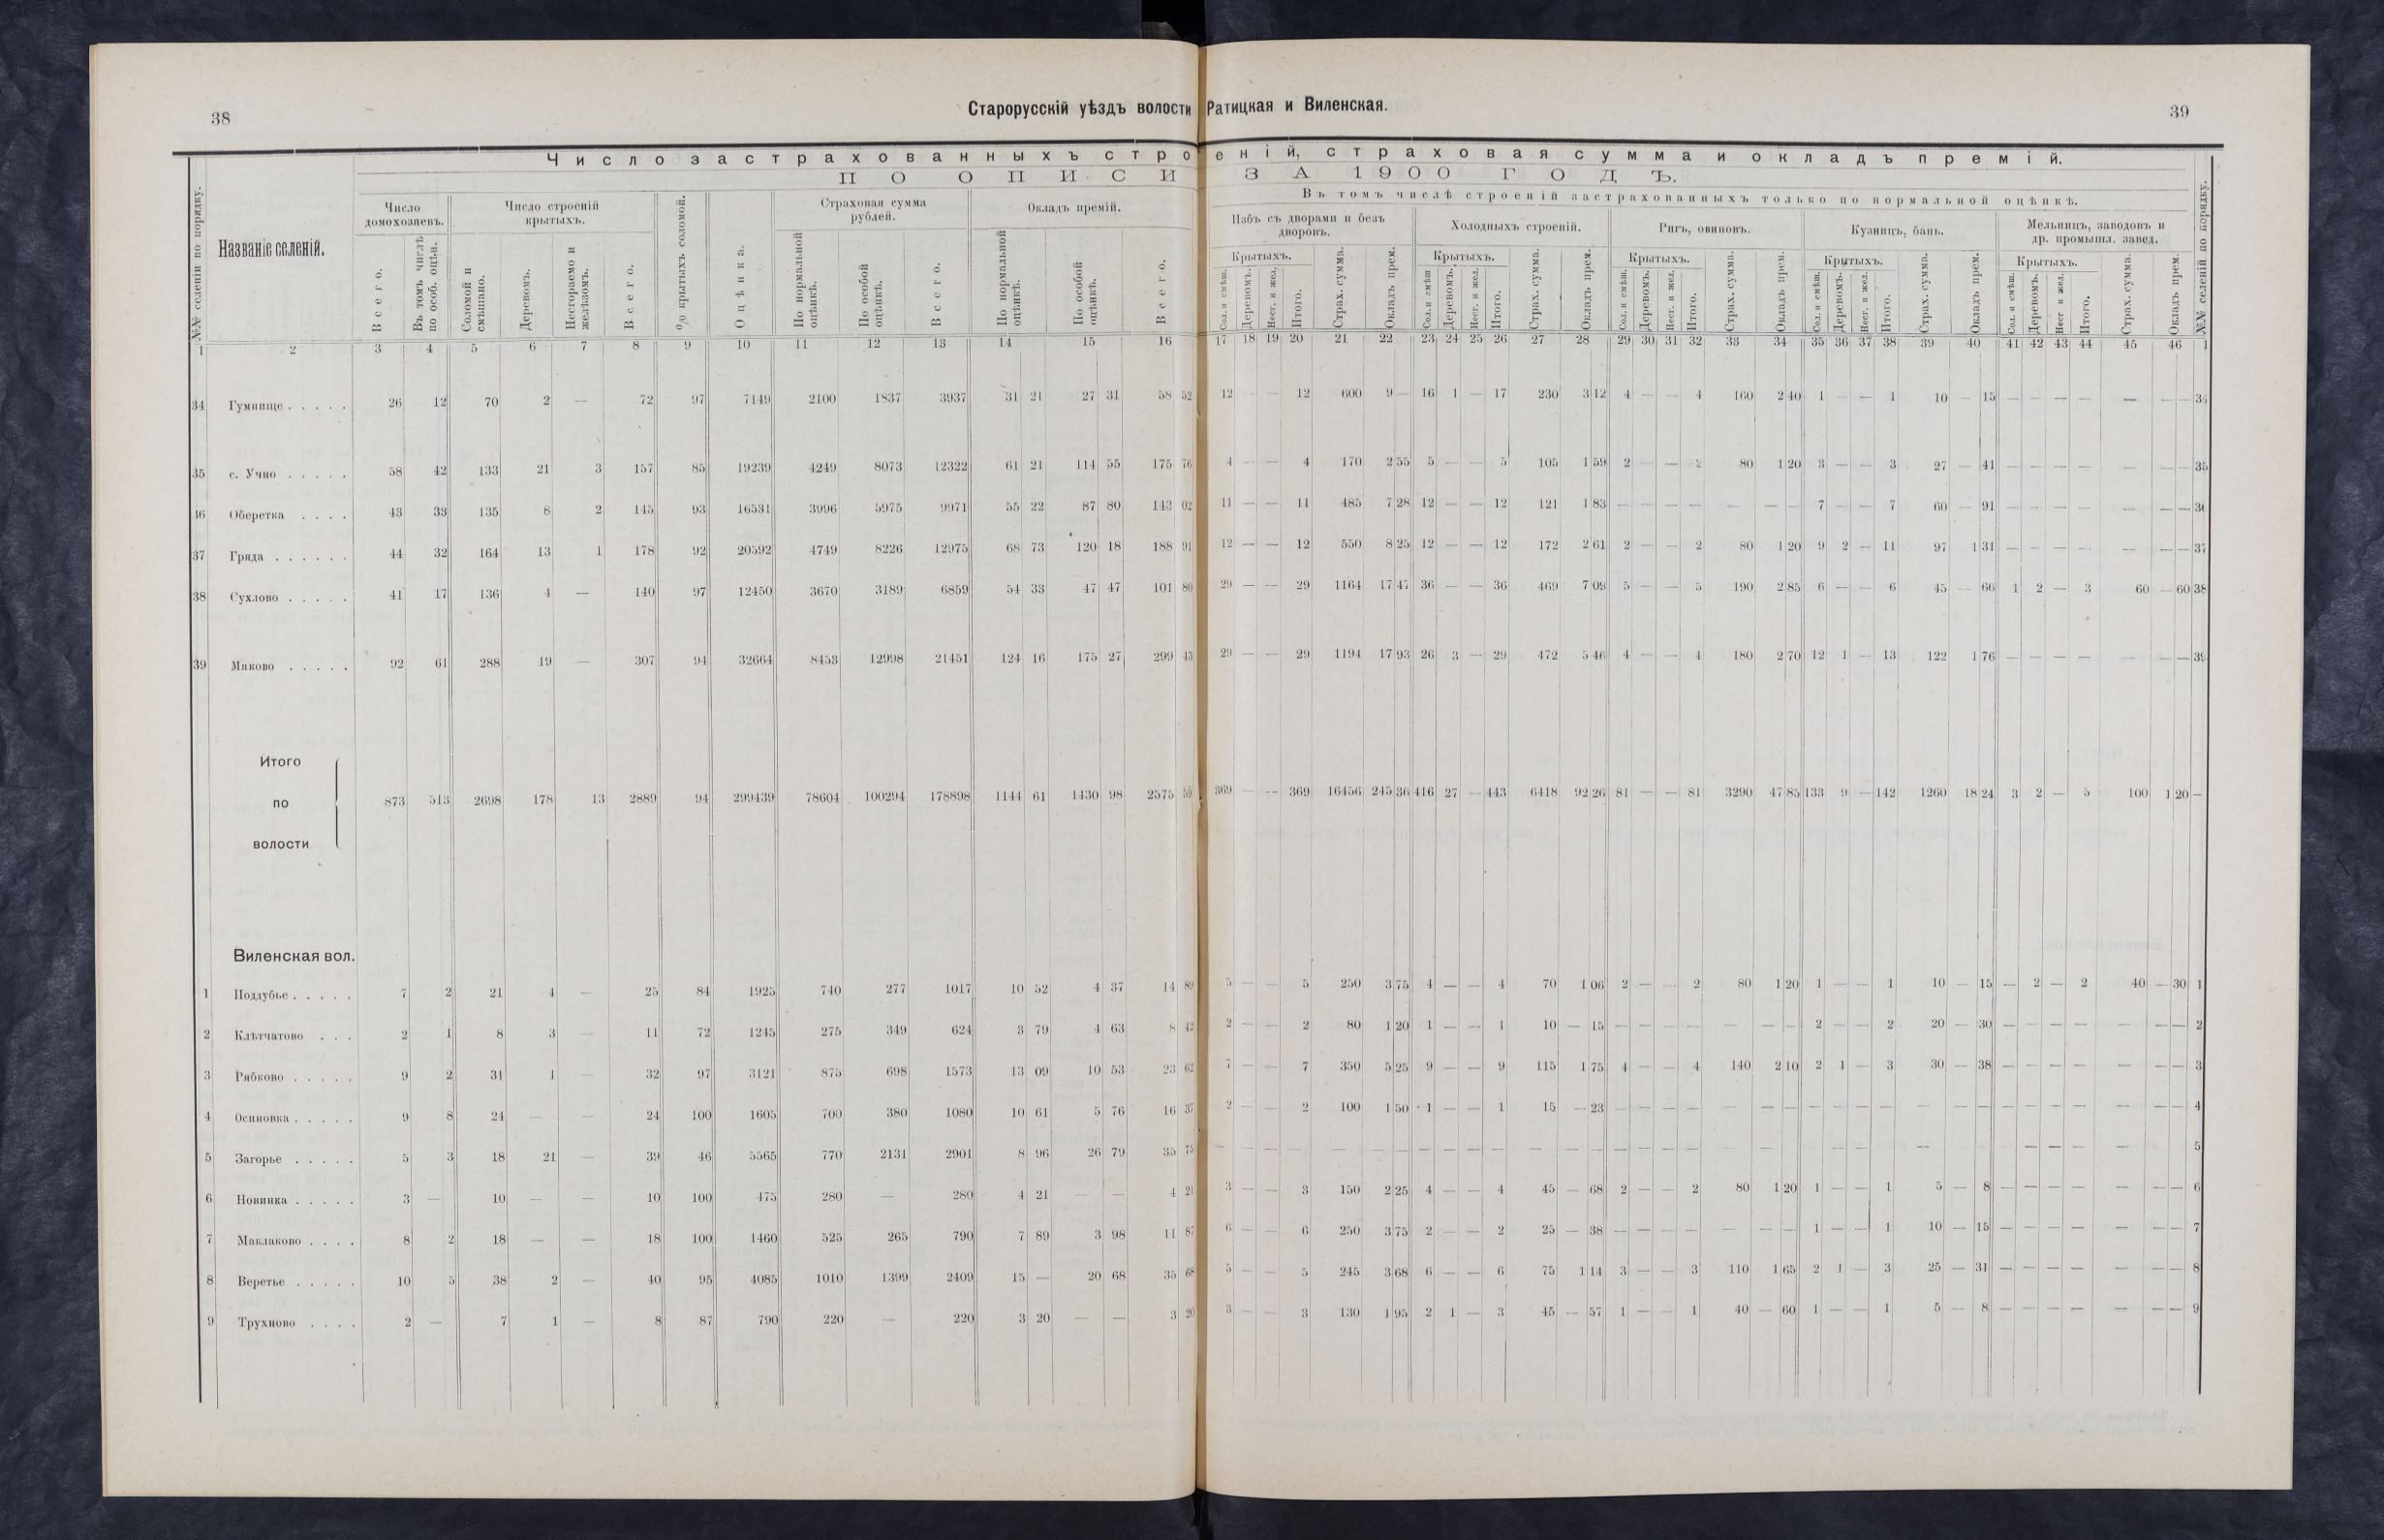 38
Старорусскій уѣздъ волости Ратицкая и Виленская.
39
Число застрахованныхъ строеній, страховая сумма и окладъ премій.
ПО ОПИСИ ЗА 1900 ГОДЪ.
Въ томъ числѣ строеній застрахованныхъ только по нормальной оцѣнкѣ.
№№ селеній по порядку.
Названіе селеній.
Число домохозяевъ.
Число строеній крытыхъ.
% крытыхъ соломой.
Оцѣнка.
Страховая сумма рублей.
Окладъ премій.
Избъ съ дворами и безъ дворовъ.
Холодныхъ строеній.
Ригъ, овиновъ.
Кузницъ, бань.
Мельницъ, заводовъ и др. промышл. завед.
№№ селеній по порядку.
Всего. Въ томъ числѣ по особ. оцѣн. Соломой и смѣшано. Деревомъ. Несгораемо и желѣзомъ. Всего. По нормальной оцѣнкѣ. По особой оцѣнкѣ. Всего. По нормальной оцѣнкѣ. По особой оцѣнкѣ. Всего.
Крытыхъ. Сол. и смѣш. Деревомъ. Несг. и жел. Итого. Страх. сумма. Окладъ прем.
Крытыхъ. Сол. и смѣш Деревомъ. Несг. и жел. Итого. Страх. сумма. Окладъ прем.
Крытыхъ. Сол. и смѣш. Деревомъ. Несг. и жел. Итого. Страх. сумма. Окладъ прем.
Крытыхъ. Сол. и смѣш. Деревомъ. Несг. и жел. Итого. Страх. сумма. Окладъ прем.
Крытыхъ. Сол. и смѣш. Деревомъ. Несг и жел. Итого. Страх. сумма. Окладъ прем.
1 2 3 4 5 6 7 8 9 10 11 12 13 14 15 16 17 18 19 20 21 22 23 24 25 26 27 28 29 30 31 32 33 34 35 36 37 38 39 40 41 42 43 44 45 46 1
34 Гумнище . . . . . 26 12 70 2 — 72 97 7149 2100 1837 3937 31 21 27 31 58 52 12 — — 12 600 9 — 16 1 — 17 230 3 12 4 — — 4 160 2 40 1 — — 1 10 — 15 — — — — — — — 34
35 с. Учно . . . . . 58 42 133 21 3 157 85 19239 4249 8073 12322 61 21 114 55 175 76 4 — — 4 170 2 55 5 — — 5 105 1 59 2 — — 2 80 1 20 3 — — 3 27 — 41 — — — — — — — 35
36 Оберетка . . . . 43 33 135 8 2 145 93 16531 3996 5975 9971 55 22 87 80 143 02 11 — — 11 485 7 28 12 — — 12 121 1 83 — — — — — — — 7 — — 7 60 — 91 — — — — — — — 36
37 Гряда . . . . . . 44 32 164 13 1 178 92 20592 4749 8226 12975 68 73 120 18 188 91 12 — — 12 550 8 25 12 — — 12 172 2 61 2 — — 2 80 1 20 9 2 — 11 97 1 31 — — — — — — — 37
38 Сухлово . . . . . 41 17 136 4 — 140 97 12450 3670 3189 6859 54 33 47 47 101 80 29 — — 29 1164 17 47 36 — — 36 469 7 09 5 — — 5 190 2 85 6 — — 6 45 — 66 1 2 — 3 60 — 60 38
39 Мяково . . . . . 92 61 288 19 — 307 94 32664 8453 12998 21451 124 16 175 27 299 43 29 — — 29 1194 17 93 26 3 — 29 472 5 46 4 — — 4 180 2 70 12 1 — 13 122 1 76 — — — — — — — 39
Итого
по
волости
873 513 2698 178 13 2889 94 299439 78604 100294 178898 1144 61 1430 98 2575 59 369 — — 369 16456 245 36 416 27 — 443 6418 92 26 81 — — 81 3290 47 85 133 9 — 142 1260 18 24 3 2 — 5 100 1 20 —
Виленская вол.
1 Поддубье . . . . . 7 2 21 4 — 25 84 1925 740 277 1017 10 52 4 37 14 89 5 — — 5 250 3 75 4 — — 4 70 1 06 2 — — 2 80 1 20 1 — — 1 10 — 15 — 2 — 2 40 — 30 1
2 Клѣтчатово . . . 2 1 8 3 — 11 72 1245 275 349 624 3 79 4 63 8 42 2 — — 2 80 1 20 1 — — 1 10 — 15 — — — — — — — 2 — — 2 20 — 30 — — — — — — — 2
3 Рябково . . . . . 9 2 31 1 — 32 97 3121 875 698 1573 13 09 10 53 23 62 7 — — 7 350 5 25 9 — — 9 115 1 75 4 — — 4 140 2 10 2 1 — 3 30 — 38 — — — — — — — 3
4 Осиновка . . . . . 9 8 24 — — 24 100 1605 700 380 1080 10 61 5 76 16 37 2 — — 2 100 1 50 1 — — 1 15 — 23 — — — — — — — — — — — — — — — — — — — — — 4
5 Загорье . . . . . 5 3 18 21 — 39 46 5565 770 2131 2901 8 96 26 79 35 75 — — — — — — — — — — — — — — — — — — — — — — — — 5
6 Новинка . . . . . 3 — 10 — — 10 100 475 280 — 280 4 21 — — 4 21 3 — — 3 150 2 25 4 — — 4 45 — 68 2 — — 2 80 1 20 1 — — 1 5 — 8 — — — — — — — 6
7 Маклаково . . . . 8 2 18 — — 18 100 1460 525 265 790 7 89 3 98 11 87 6 — — 6 250 3 75 2 — — 2 25 — 38 — — — — — — — 1 — — 1 10 — 15 — — — — — — — 7
8 Веретье . . . . . 10 5 38 2 — 40 95 4085 1010 1399 2409 15 — 20 68 35 68 5 — — 5 245 3 68 6 — — 6 75 1 14 3 — — 3 110 1 65 2 1 — 3 25 — 31 — — — — — — — 8
9 Трухново . . . . 2 — 7 1 — 8 87 790 220 — 220 3 20 — — 3 20 3 — — 3 130 1 95 2 1 — 3 45 — 57 1 — — 1 40 — 60 1 — — 1 5 — 8 — — — — — — — 9